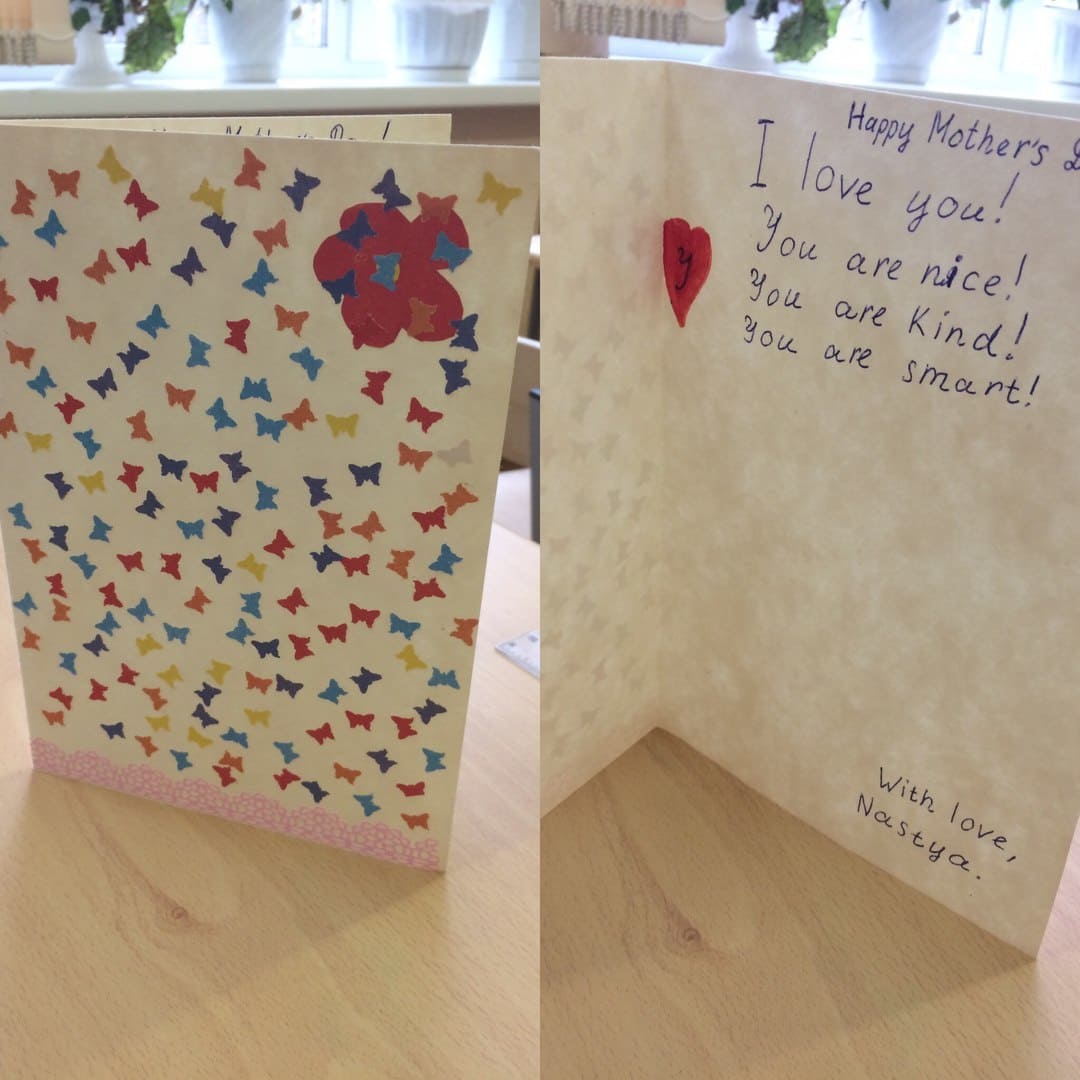 Happy Mother's
I love you!
y
You are nice!
You are Kind!
You are smart!
With love,
Nastya.